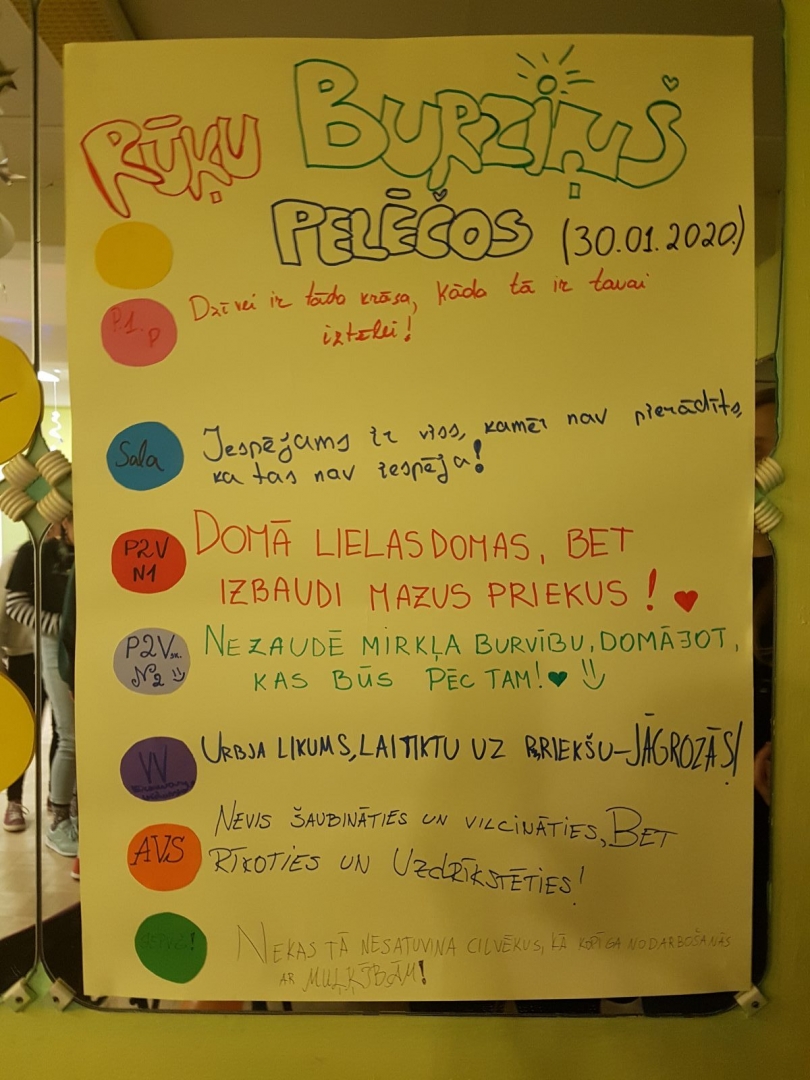 RŪĶU BURZIŅŠ
PELĒČOS (30.01.2020.)
P.1.p
Dzīvei ir tāda krāsa, kāda tā ir tavai
iztēlei!
Sala
Iespējams ir viss, kamēr nav pierādīts,
ka tas nav iespēja!
P2V
N1
DOMĀ LIELAS DOMAS, BET
IZBAUDI MAZUS PRIEKUS! ♥
P2V sk.
N2
NEZAUDĒ MIRKĻA BURVĪBU, DOMĀJOT,
KAS BŪS PĒC TAM! ♥
W
URBJA LIKUMS, LAI TIKTU UZ PRIEKŠU-JĀGROZĀS!
AVS
NEVIS ŠAUBINĀTIES UN VILCINĀTIES, BET
RĪKOTIES UN UZDRĪKSTĒTIES!
NEKAS TĀ NESATUVINA CILVĒKUS, KĀ KOPĪGA NODARBOŠANĀS
AR MUĻĶĪBĀM!